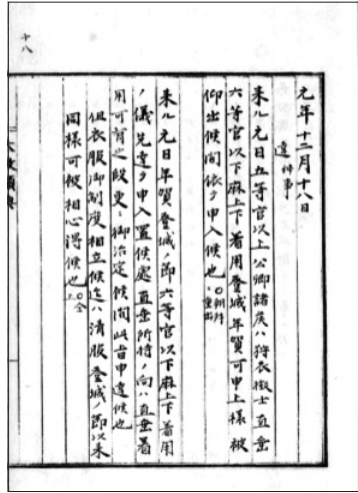 十八
元年十二月十八日
達 弁事
来ル元日五等官以上公卿諸侯ハ狩衣徴士直垂
六等官以下麻上下着用登城年賀可申上様被
仰出候間依テ申入候也
来ル元日年賀登城ノ節六等官以下麻上下着用
ノ儀先達テ申入置候處直垂所持ノ向ハ直垂着
用可有之段更ニ御治定候間此旨申達候也
但衣服御制度相立候迄ハ清服登城ノ節以来
同様可被相心得候也